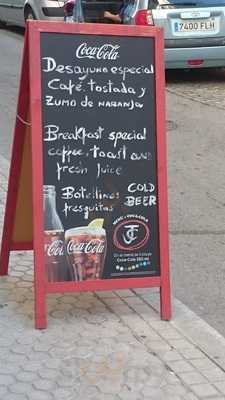 7400 FLN
Coca-Cola
Desayuno especial
Café, tostada y
zumo de naranja
Breakfast special
coffee, toast and
fresh juice
Botellines
fresquitas
COLD
BEER
Coca-Cola